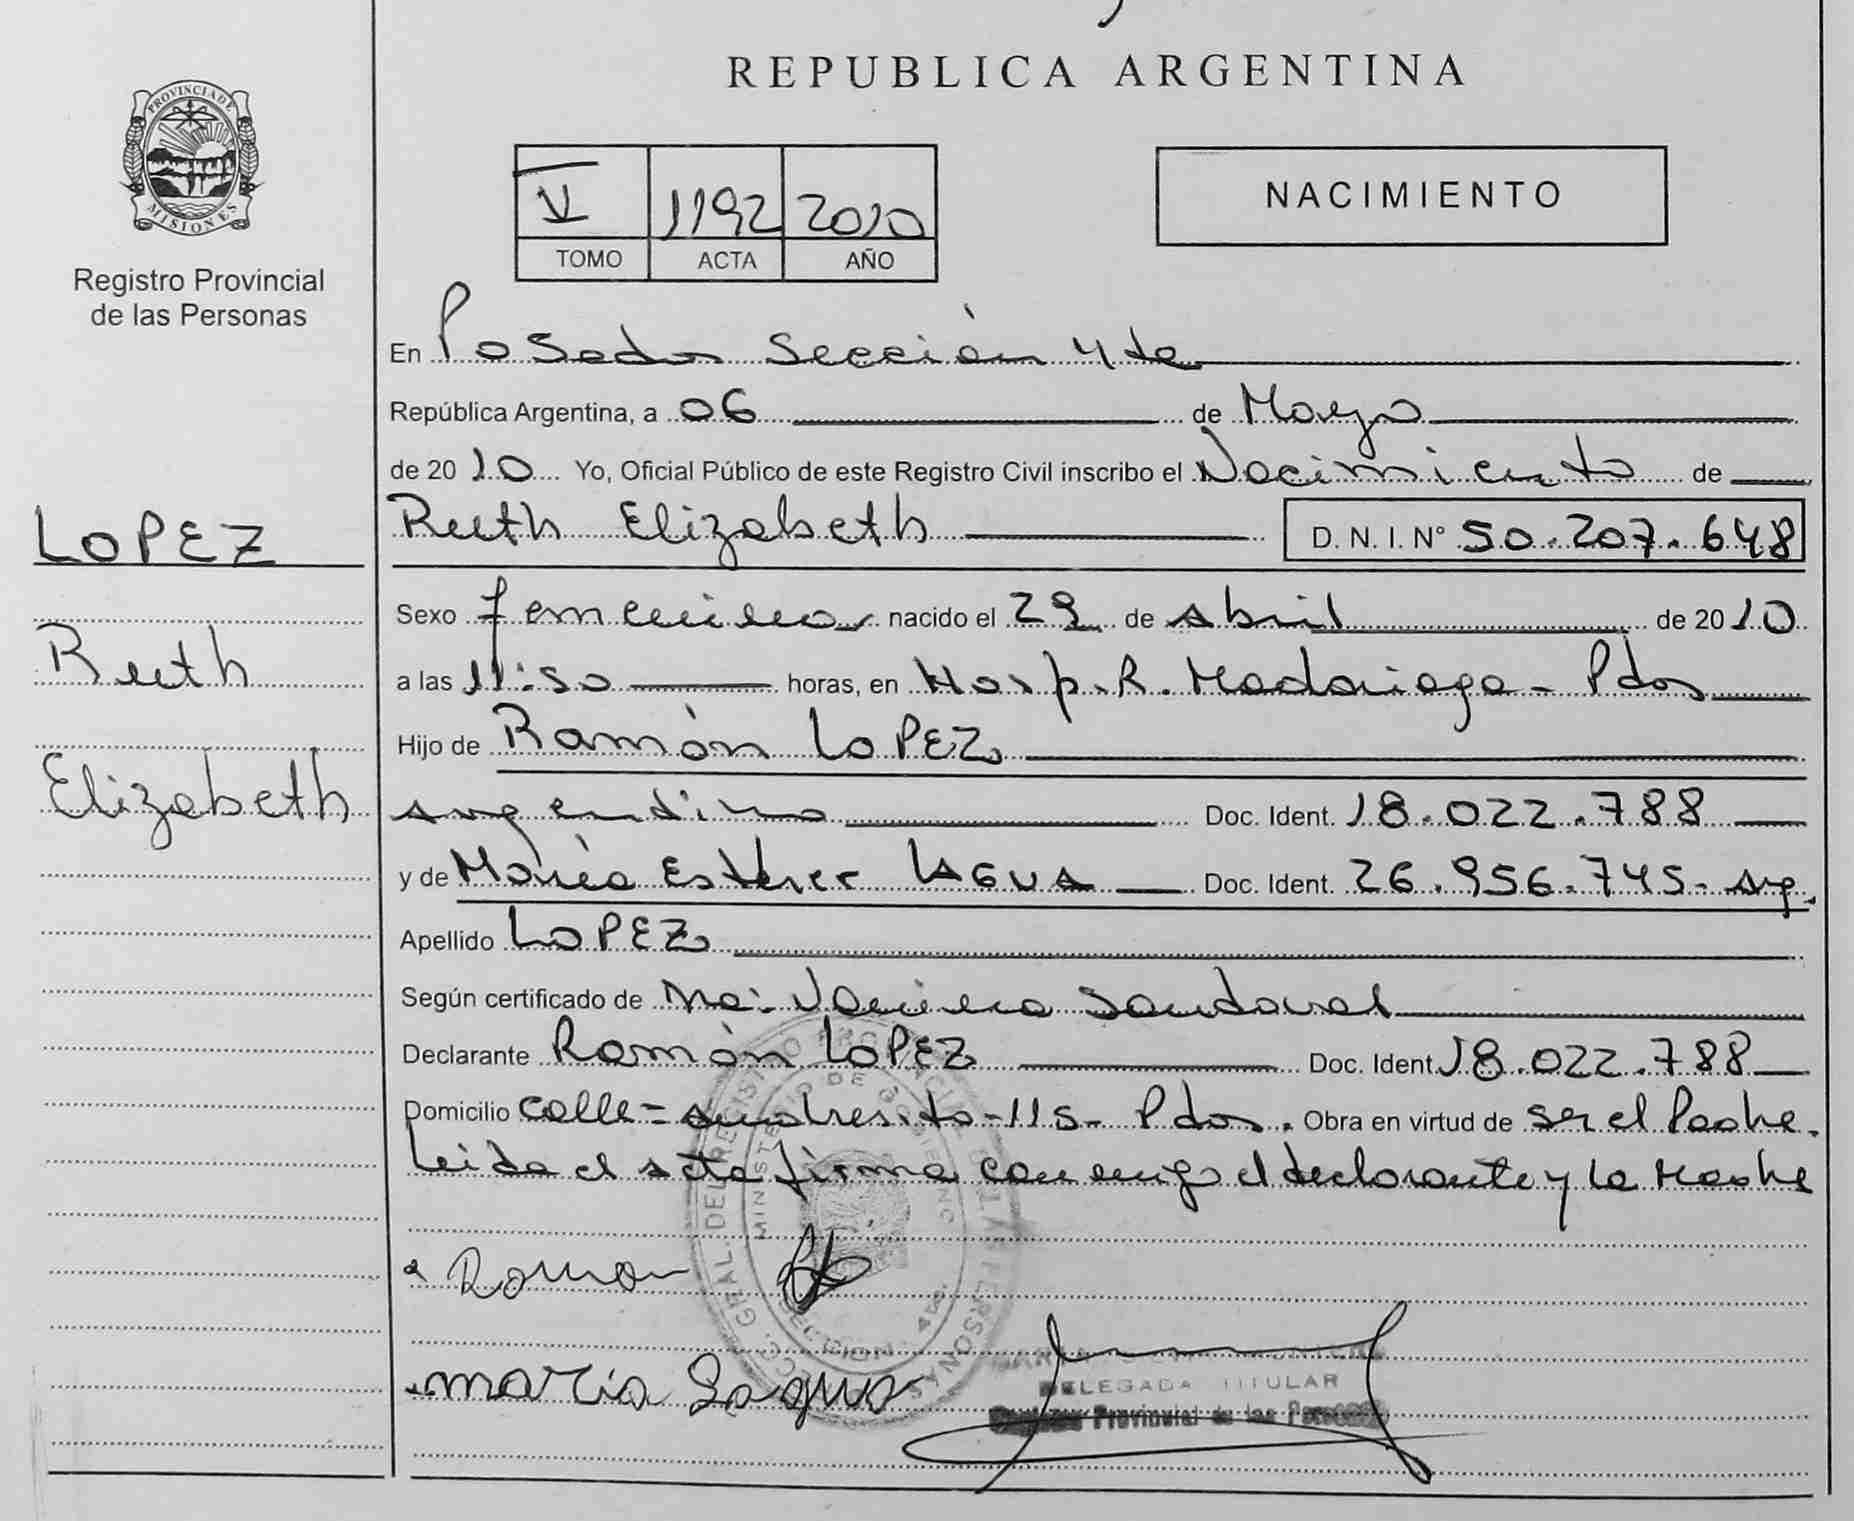 REPUBLICA ARGENTINA
PROVINCIA DE
MISIONES
Registro Provincial
de las Personas
V 1192 2010
TOMO ACTA AÑO
NACIMIENTO
En Posadas Sección 4 ta
República Argentina, a 06 de Mayo
de 2010 Yo, Oficial Público de este Registro Civil inscribo el Nacimiento de
Ruth Elizabeth D. N. I. Nº 50.207.648
LOPEZ
Ruth
Elizabeth
Sexo femenino nacido el 29 de abril de 2010
a las 11:50 horas, en Hosp. R. Madariaga - Pdas
Hijo de Ramón LOPEZ
argentino Doc. Ident. 18.022.788
y de María Esther LAGUA Doc. Ident. 26.956.745- arg.
Apellido LOPEZ
Según certificado de Sandoval
Declarante Ramón LOPEZ Doc. Ident. 18.022.788
Domicilio calle= andresito-115- Pdas. Obra en virtud de ser el Padre.
Leida el acta firma conmigo el declarante y la Madre
Ramon
maria Lagua
DELEGADA TITULAR
Provincial de las Personas